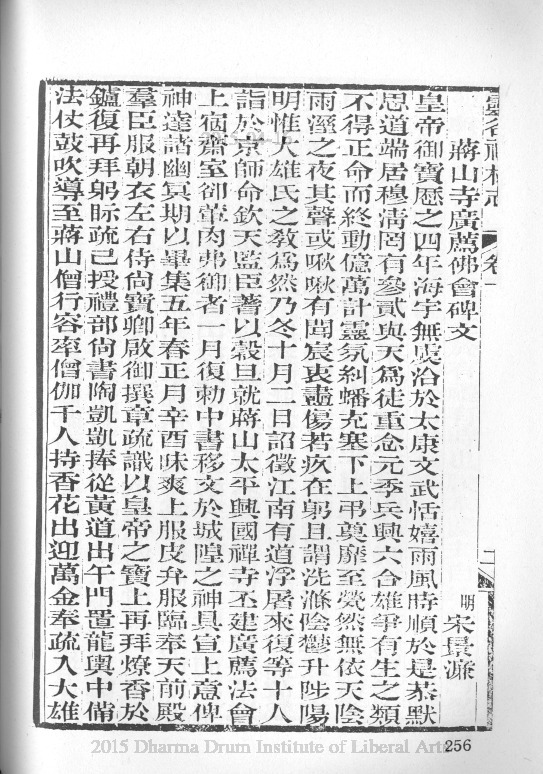 靈谷禪林志 卷一
蔣山寺廣薦佛會碑文
明 宋景濂
皇帝御寶曆之四年海宇無虞洽於太康文武恬嬉雨風時順於是恭默
思道端居穆清罔有參貳與天爲徒重念元季兵興六合雄爭有生之類
不得正命而終動億萬計靈氛糾蟠充塞下上弔奠靡至煢然無依天陰
雨溼之夜其聲或啾啾有聞宸衷盡傷若疚在躬且謂洗滌陰鬱升陟陽
明惟大雄氏之敎爲然乃冬十月二日詔徵江南有道浮屠來復等十人
詣於京師命欽天監臣蓍以穀旦就蔣山太平興國禪寺丕建廣薦法會
上宿齋室卻葷肉弗御者一月復勅中書移文於城隍之神具宣上意俾
神達諸幽冥期以畢集五年春正月辛酉昧爽上服皮弁服臨奉天前殿
羣臣服朝衣左右侍尙寶卿啟御撰章疏識以皇帝之寶上再拜燎香於
鑪復再拜躬眎疏已授禮部尙書陶凱凱捧從黃道出午門置龍輿中備
法仗鼓吹導至蔣山僧行容率僧伽千人持香花出迎萬金奉疏入大雄
二
256
2015 Dharma Drum Institute of Liberal Arts